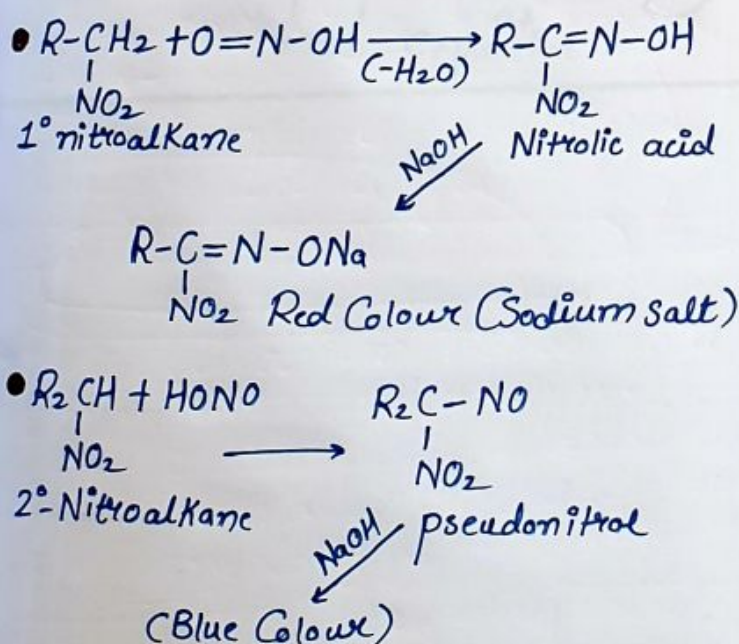 • R-CH2 + O=N-OH ⟶ R-C=N-OH
(-H2O)
NO2 NO2
1° nitroalkane Nitrolic acid
NaOH
R-C=N-ONa
NO2 Red Colour (Sodium salt)
• R2CH + HONO ⟶ R2C-NO
NO2 NO2
2°-Nitroalkane pseudonitrol
NaOH
(Blue Colour)